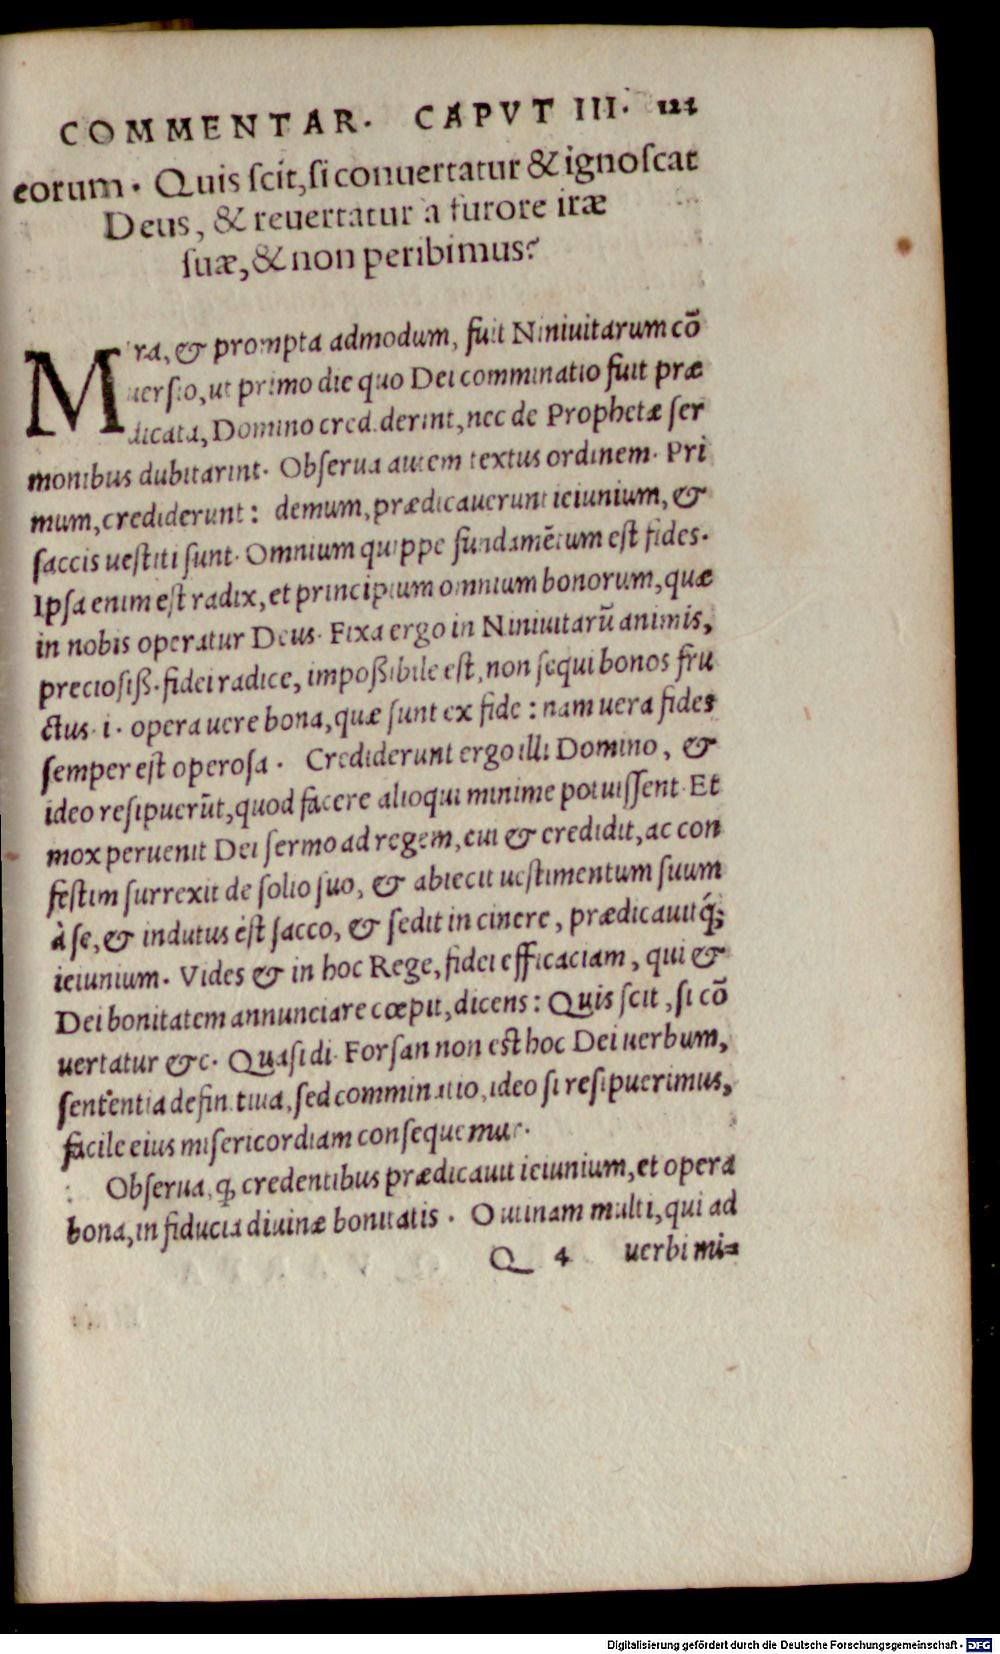 COMMENTAR. CAPVT III. 124
eorum. Quis scit, si conuertatur & ignoscat
Deus, & reuertatur à furore iræ
suæ, & non peribimus?
MIra, & prompta admodum, fuit Niniuitarum cō
uersio, ut primo die quo Dei comminatio fuit præ
dicata, Domino crediderint, nec de Prophetæ ser
monibus dubitarint. Obserua autem textus ordinem. Pri
mum, crediderunt: demum, prædicauerunt ieiunium, &
saccis uestiti sunt. Omnium quippe fundamētum est fides.
Ipsa enim est radix, et principium omnium bonorum, quæ
in nobis operatur Deus. Fixa ergo in Niniuitarū animis,
preciosiß. fidei radice, impoßibile est, non sequi bonos fru
ctus. i. opera uere bona, quæ sunt ex fide: nam uera fides
semper est operosa. Crediderunt ergo illi Domino, &
ideo resipuerūt, quod facere alioqui minime potuissent. Et
mox peruenit Dei sermo ad regem, cui & credidit, ac con
festim surrexit de solio suo, & abiecit uestimentum suum
à se, & indutus est sacco, & sedit in cinere, prædicauit q́;
ieiunium. Vides & in hoc Rege, fidei efficaciam, qui &
Dei bonitatem annunciare cœpit, dicens: Quis scit, si cō
uertatur &c. Quasi di. Forsan non est hoc Dei uerbum,
sententia definitiua, sed comminatio, ideo si resipuerimus,
facile eius misericordiam consequemur.
Obserua, ꝙ credentibus prædicauit ieiunium, et opera
bona, in fiducia diuinæ bonitatis. O utinam multi, qui ad
Q 4 uerbi mi=
Digitalisierung gefördert durch die Deutsche Forschungsgemeinschaft - DFG